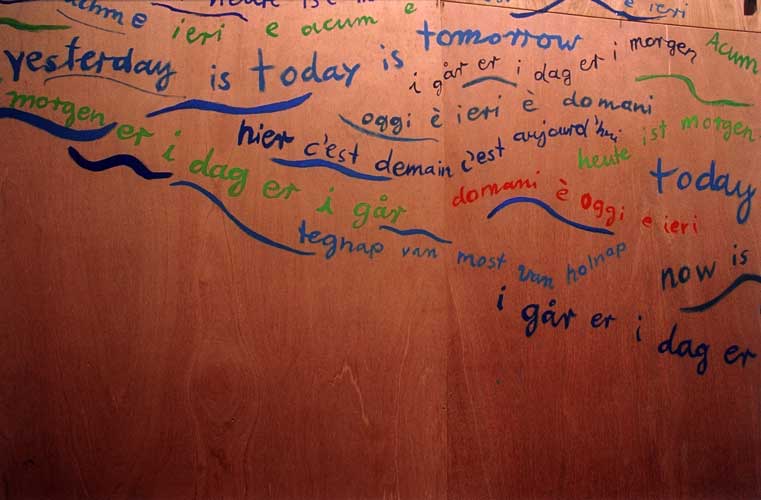 heute ist m
achm e ieri e acum e
ieri
yesterday is today is tomorrow
i går er i dag er i morgen
Acum
morgen er i dag er i går
oggi è ieri è domani
hier c'est demain c'est aujourd'hui
heute ist morgen
domani è oggi e ieri
today
tegnap van most van holnap
now is
i går er i dag er